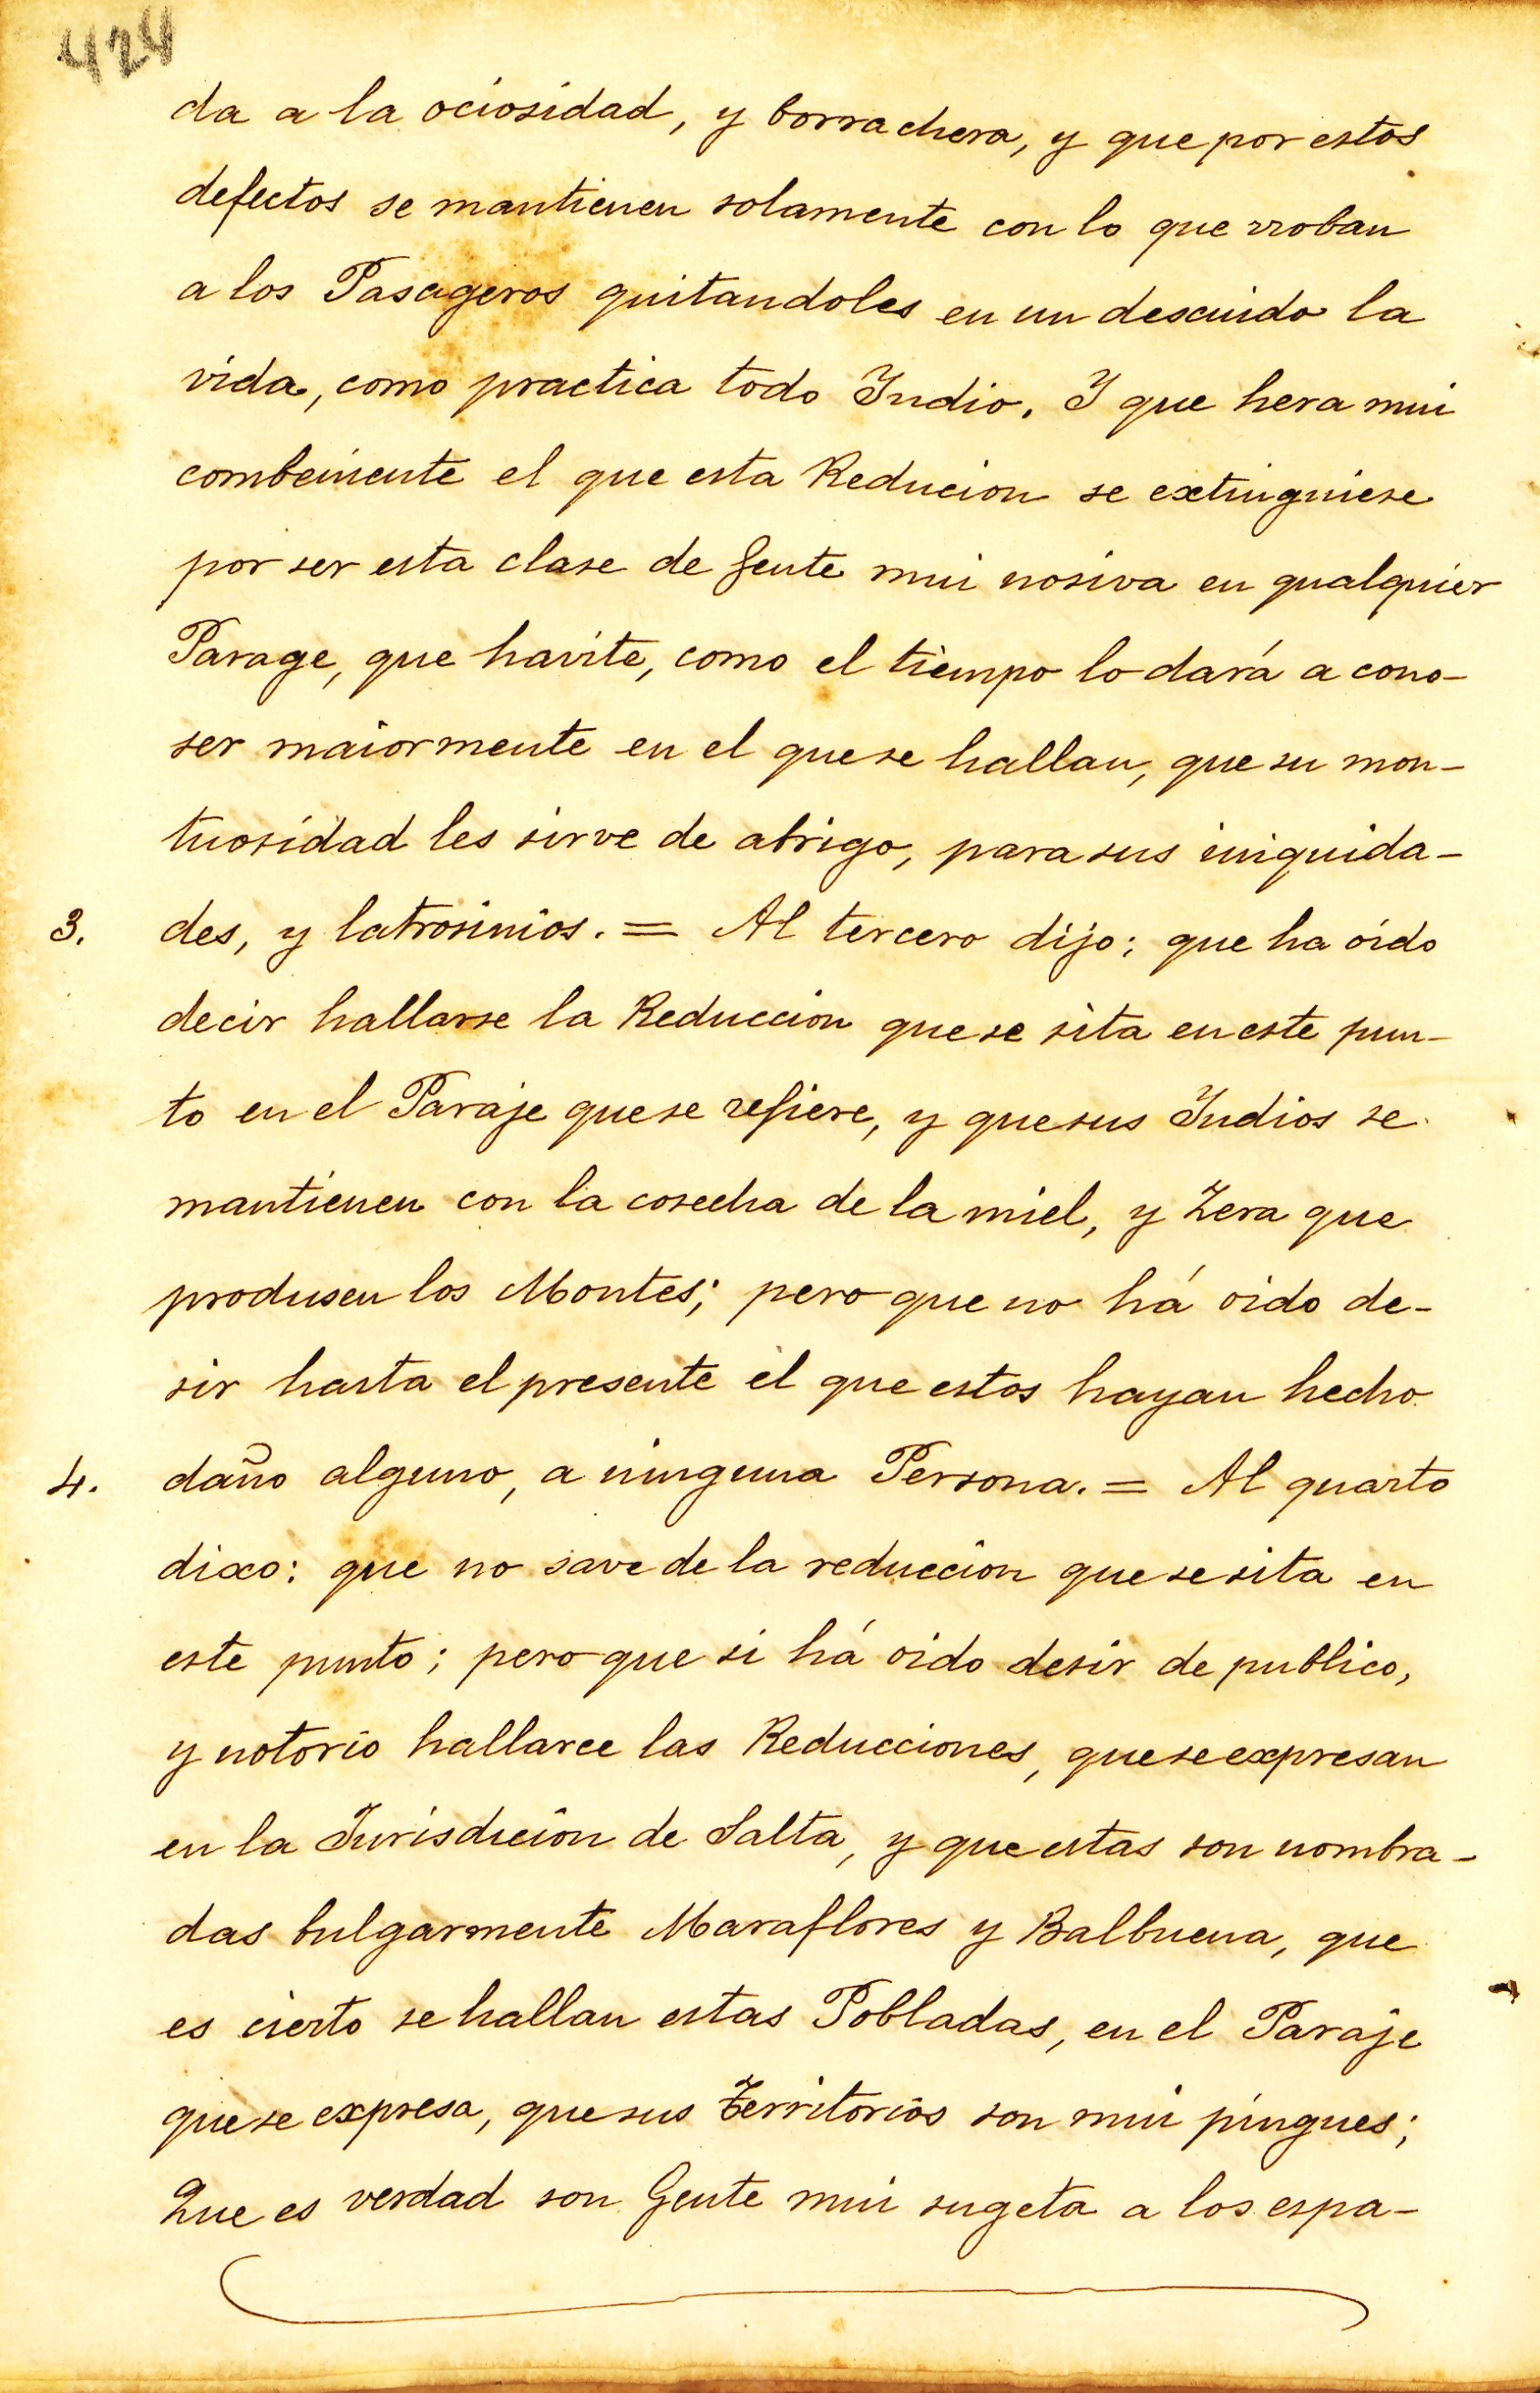 424
da a la ociosidad, y borrachera, y que por estos
defectos se mantienen solamente con lo que rroban
a los Pasageros quitandoles en un descuido la
vida, como practica todo Yndio. Y que hera mui
combeniente el que esta Reducion se extinguiese
por ser esta clase de Gente mui nosiva en qualquier
Parage, que havite, como el tiempo lo dará a cono-
ser maiormente en el que se hallan, que su mon-
tuosidad les sirve de abrigo, para sus iniquida-
3. des, y latrosinios. = Al tercero dijo: que ha oido
decir hallarse la Reduccion que se sita en este pun-
to en el Paraje que se refiere, y que sus Yndios se
mantienen con la cosecha de la miel, y Zera que
produsen los Montes; pero que no há oido de-
sir hasta el presente el que estos hayan hecho
4. daño alguno, a ninguna Persona. = Al quarto
dixo: que no save de la reduccion que se sita en
este punto; pero que si há oido desir de publico,
y notorio hallarce las Reducciones, que se expresan
en la Jurisdicion de Salta, y que estas son nombra-
das bulgarmente Maraflores y Balbuena, que
es cierto se hallan estas Pobladas, en el Paraje
que se expresa, que sus Territorios son mui pingues;
Que es verdad son Gente mui sugeta a los espa-